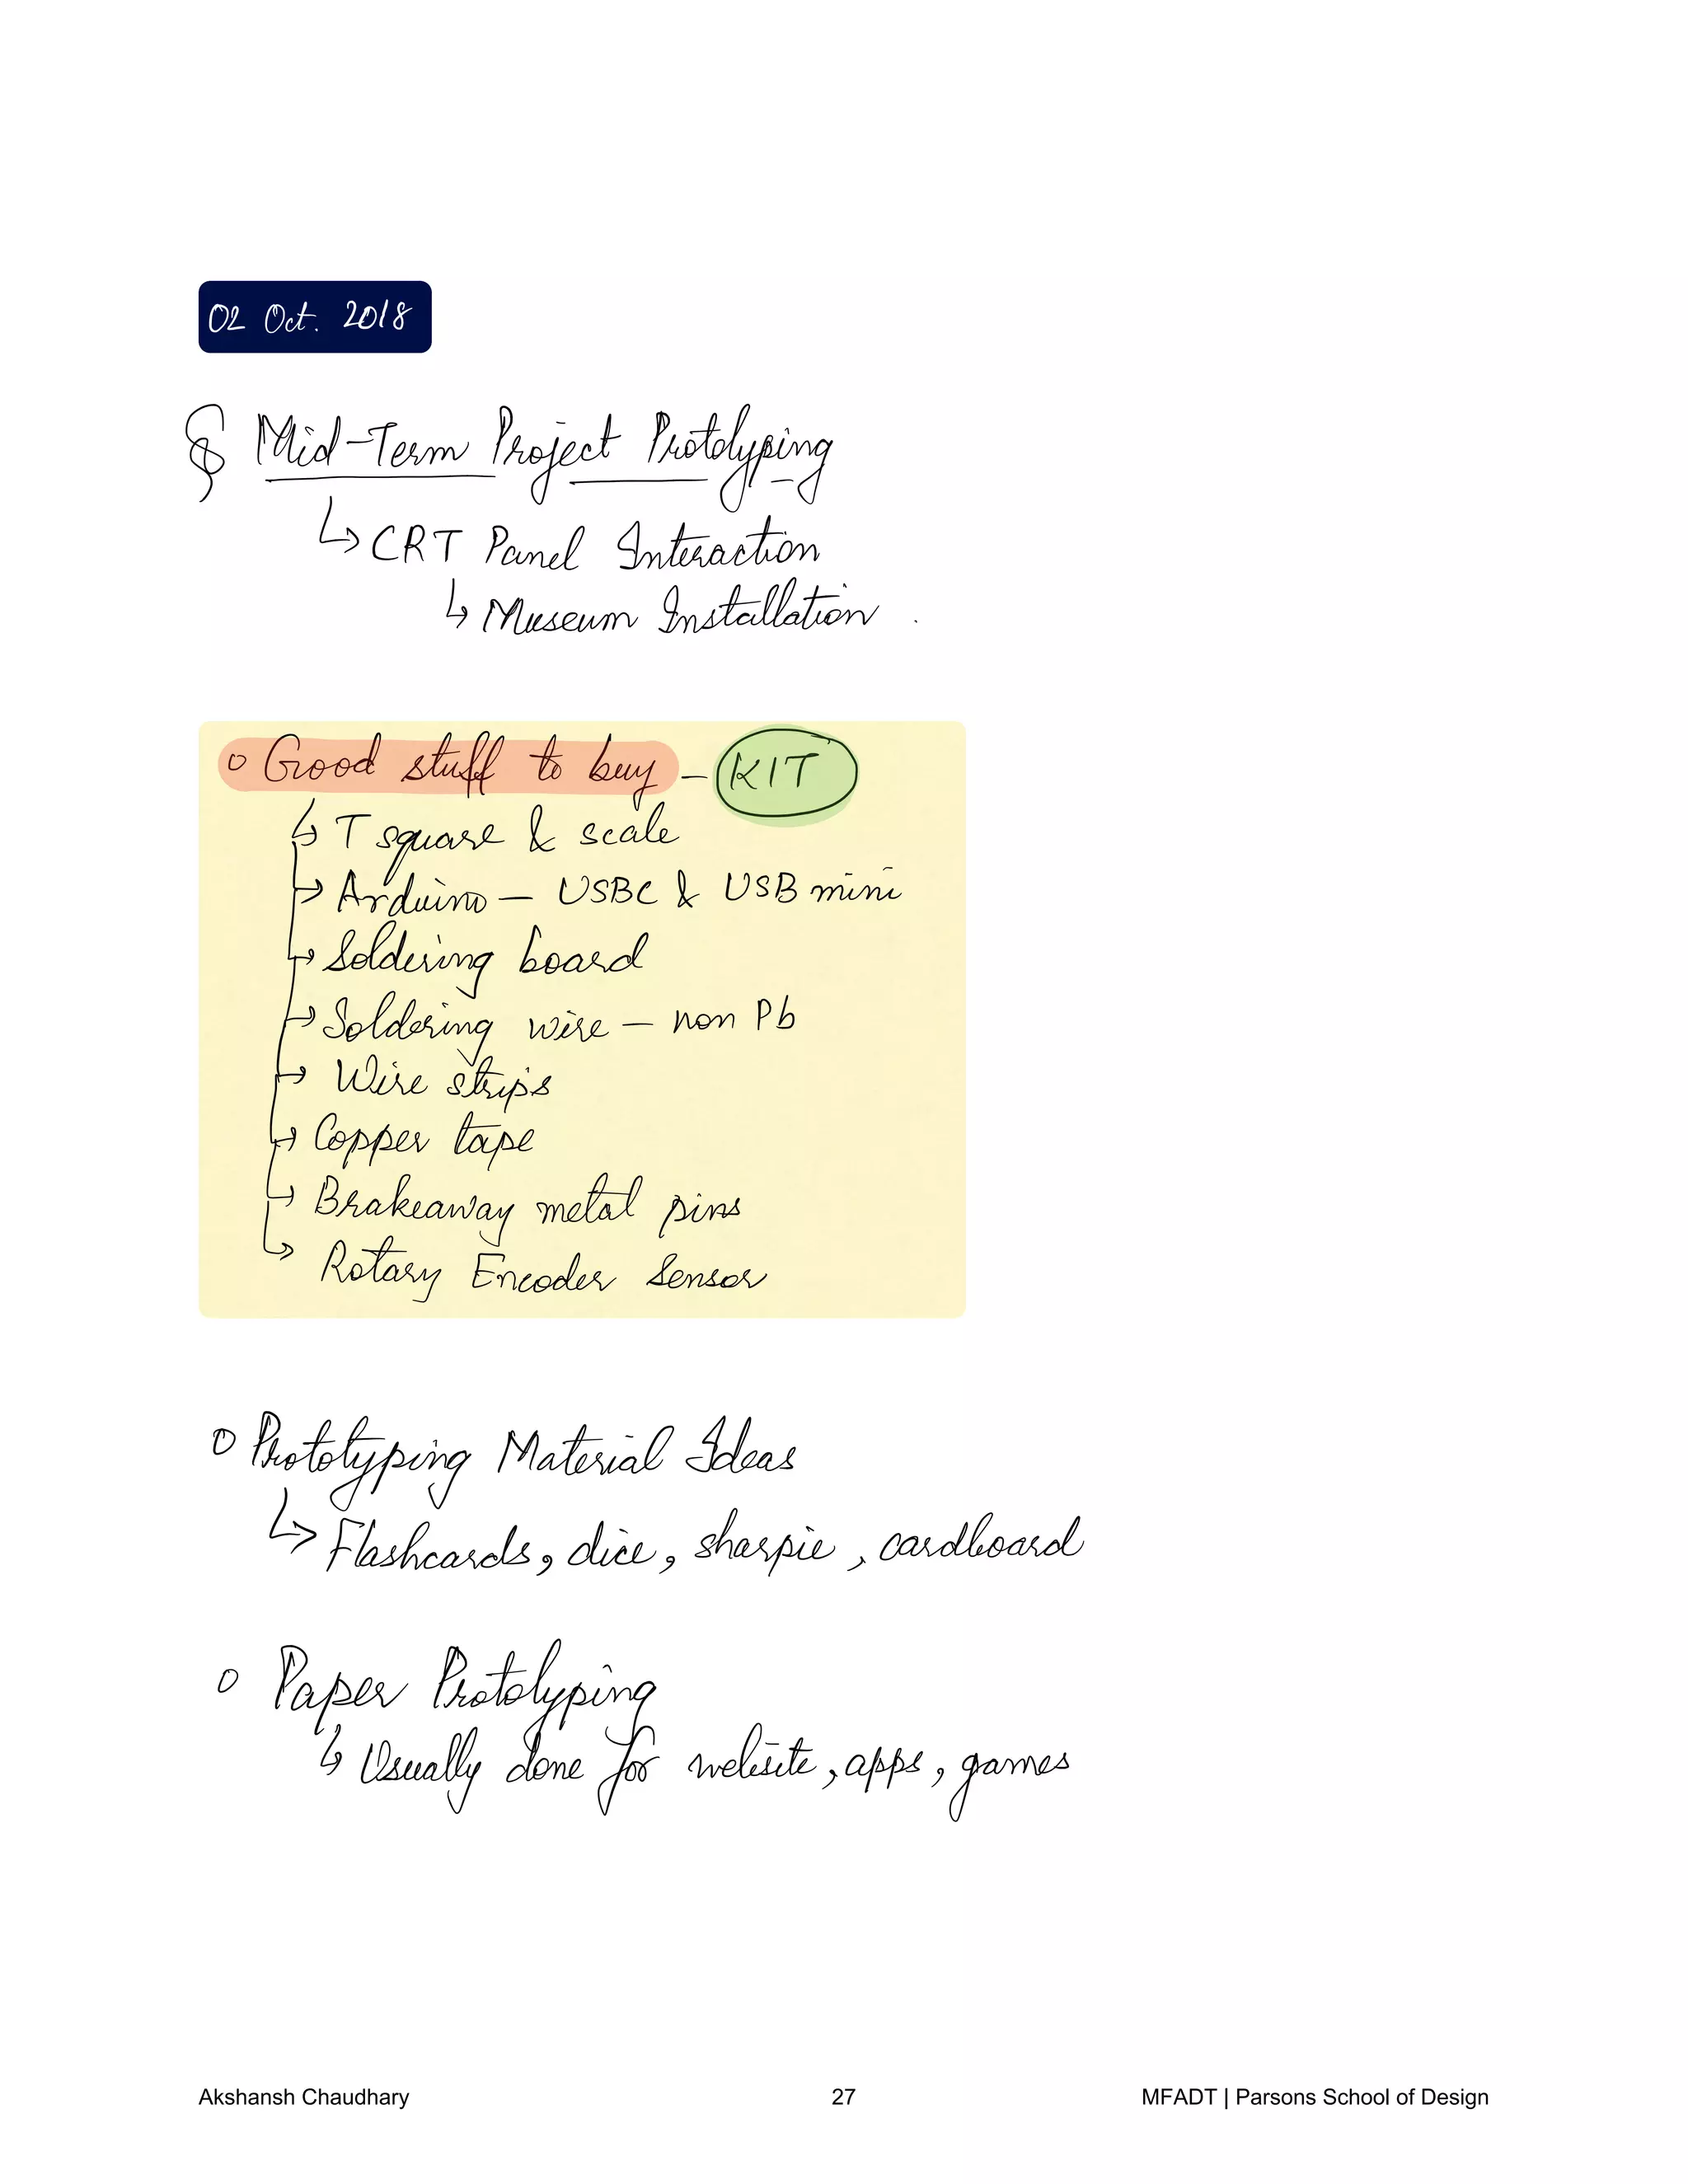 02 Oct. 2018
§ Mid-Term Project Prototyping
↳ CRT Panel Interaction
↳ Museum Installation.
o Good stuff to buy - KIT
↳ T square & scale
↳ Arduino - USBC & USB mini
↳ Soldering board
↳ Soldering wire - non Pb
↳ Wire strips
↳ Copper tape
↳ Brakeaway metal pins
↳ Rotary Encoder Sensor
o Prototyping Material Ideas
↳ Flashcards, dice, sharpie, cardboard
o Paper Prototyping
↳ Usually done for website, apps, games
Akshansh Chaudhary 27 MFADT | Parsons School of Design